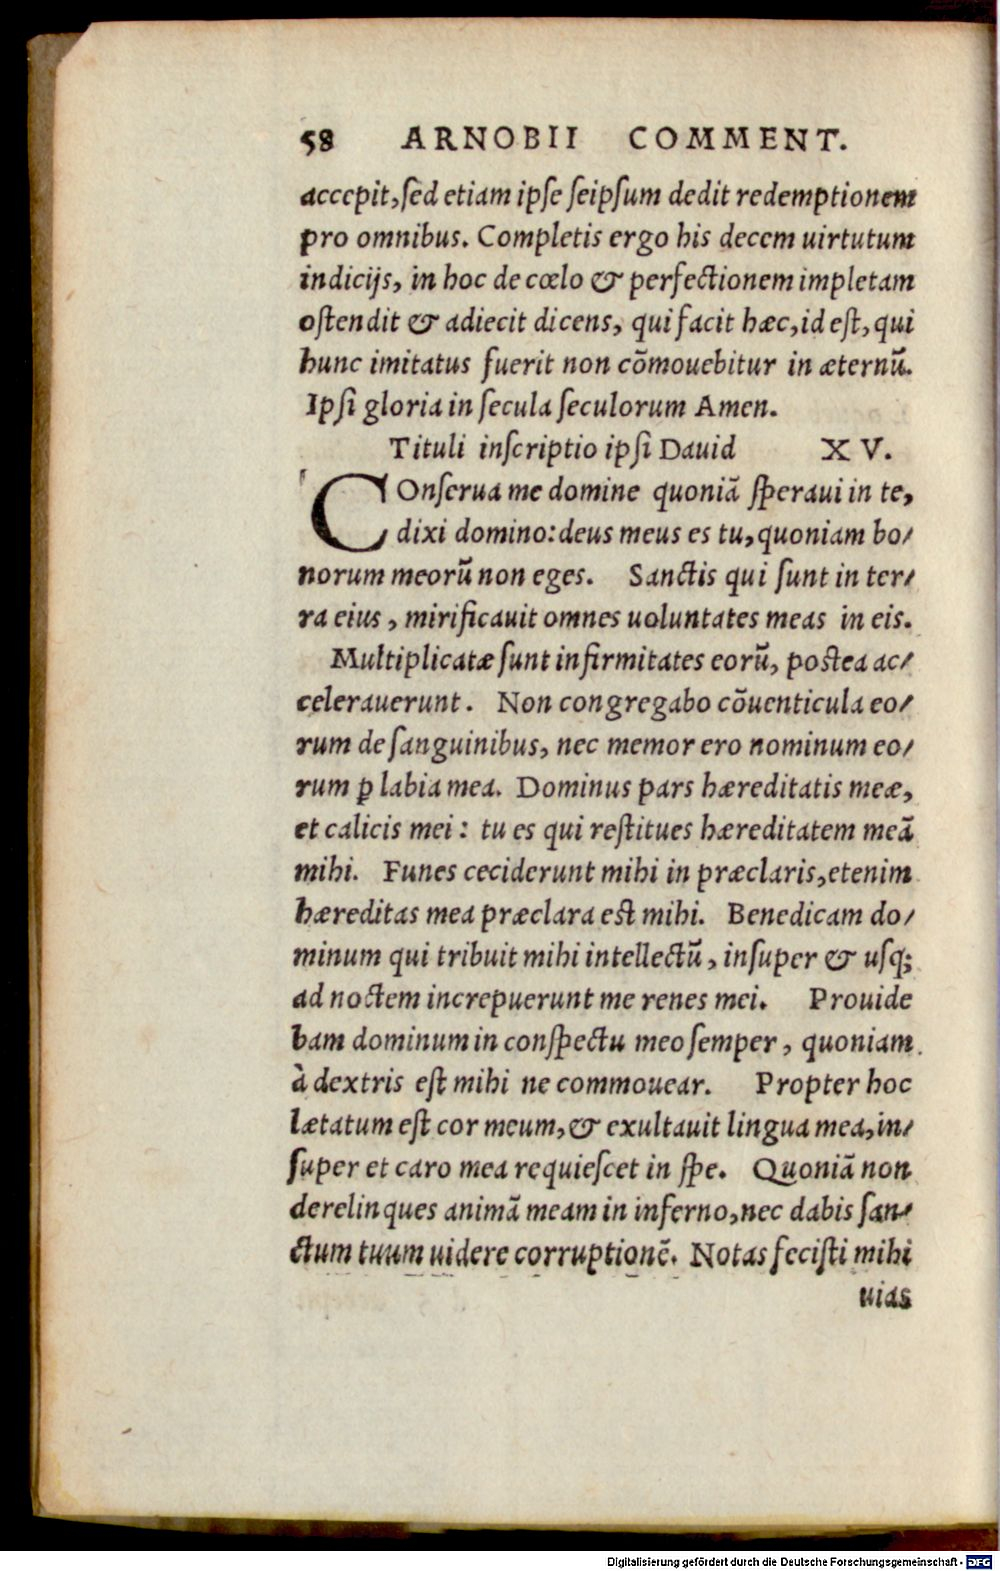 58 ARNOBII COMMENT.
accepit, sed etiam ipse seipsum dedit redemptionem
pro omnibus. Completis ergo his decem uirtutum
indicijs, in hoc de cœlo & perfectionem impletam
ostendit & adiecit dicens, qui facit hæc, id est, qui
hunc imitatus fuerit non cõmouebitur in æternũ.
Ipsi gloria in secula seculorum Amen.
Tituli inscriptio ipsi Dauid XV.
COnserua me domine quoniã speraui in te,
dixi domino: deus meus es tu, quoniam bo/
norum meorũ non eges. Sanctis qui sunt in ter/
ra eius, mirificauit omnes uoluntates meas in eis.
Multiplicatæ sunt infirmitates eorũ, postea ac/
celerauerunt. Non congregabo cõuenticula eo/
rum de sanguinibus, nec memor ero nominum eo/
rum ꝑ labia mea. Dominus pars hæreditatis meæ,
et calicis mei: tu es qui restitues hæreditatem meã
mihi. Funes ceciderunt mihi in præclaris, etenim
hæreditas mea præclara est mihi. Benedicam do/
minum qui tribuit mihi intellectũ, insuper & usq;
ad noctem increpuerunt me renes mei. Prouide
bam dominum in conspectu meo semper, quoniam
à dextris est mihi ne commouear. Propter hoc
lætatum est cor meum, & exultauit lingua mea, in/
super et caro mea requiescet in spe. Quoniã non
derelinques animã meam in inferno, nec dabis san/
ctum tuum uidere corruptionẽ. Notas fecisti mihi
uias
Digitalisierung gefördert durch die Deutsche Forschungsgemeinschaft - DFG